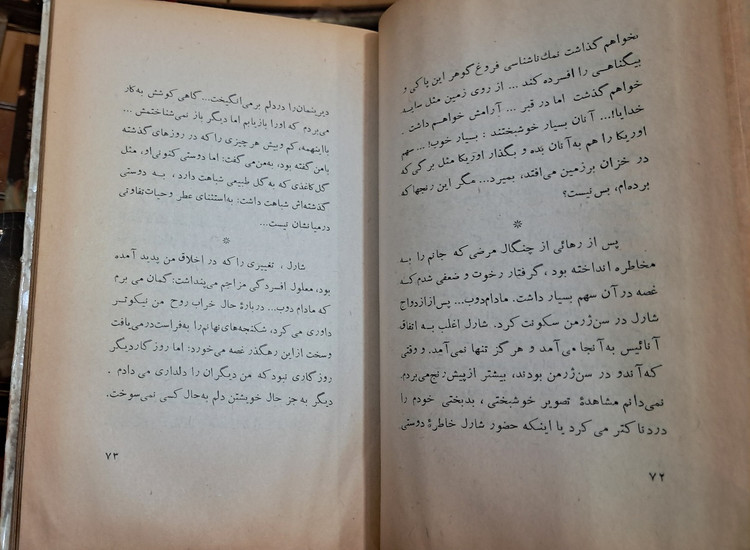 نخواهم گذاشت نمك ناشناسی فروغ گوهر این پاکی و
بیگناهی را افسرده کند ... از روی زمین مثل سایه
خواهم گذشت اما در قبر ... آرامش خواهم داشت .
خدایا!... آنان بسیار خوشبختند : بسیار خوب! ... سهم
اوریکا را هم به آنان بده و بگذار اوریکا مثل برگی که
در خزان برزمین می‌افتد، بمیرد... مگر این رنجها که
برده‌ام، بس نیست؟
*
پس از رهائی از چنگال مرضی که جانم را به
مخاطره انداخته بود ، گرفتار رخوت و ضعفی شدم که
غصه در آن سهم بسیار داشت. مادام‌دوب... پس‌از ازدواج
شارل در سن‌ژرمن سکونت کرد. شارل اغلب به اتفاق
آنائیس به آنجا می‌آمد و هرگز تنها نمی‌آمد. و وقتی
که آندو در سن‌ژرمن بودند، بیشتر ازپیش رنج‌می‌بردم.
نمی‌دانم مشاهدهٔ تصویر خوشبختی ، بدبختی خودم را
دردناکتر می کرد یا اینکه حضور شارل خاطرهٔ دوستی
۷۲
دیرینمان را دردلم برمی‌انگیخت... گاهی کوشش به‌کار
می‌بردم که اورا بازیابم اما دیگر باز نمی‌شناختمش ...
بااینهمه، کم وبیش هر چیزی را که در روزهای گذشته
بامن گفته بود، به‌من‌می گفت: اما دوستی کنونی‌او، مثل
گل کاغذی که به گل طبیعی شباهت دارد ، به دوستی
گذشته‌اش شباهت داشت: به‌استثنای عطر و حیات‌تفاوتی
درمیانشان نیست...
*
شارل ، تغییری را که در اخلاق من پدید آمده
بود، معلول افسردگی مزاجم می‌پنداشت: گمان می برم
که مادام دوب... دربارهٔ حال خراب روح من نیکوتر
داوری می کرد، شکنجه‌های نهانم‌را به‌فراست‌درمی‌یافت
و سخت ازاین رهگذر غصه می‌خورد: اما روز گاردیگر
روز گاری نبود که من دیگران را دلداری می دادم .
دیگر به جز حال خویشتن دلم به‌حال کسی نمی‌سوخت.
۷۳